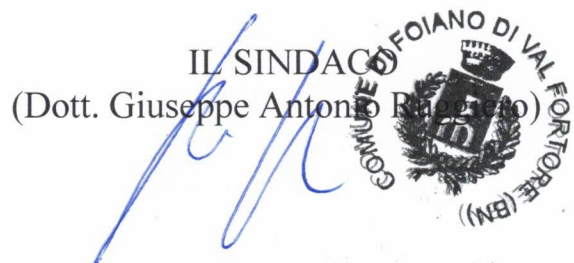 IL SINDACO
(Dott. Giuseppe Antonio Ruggiero)
COMUNE DI FOIANO DI VAL FORTORE (BN)